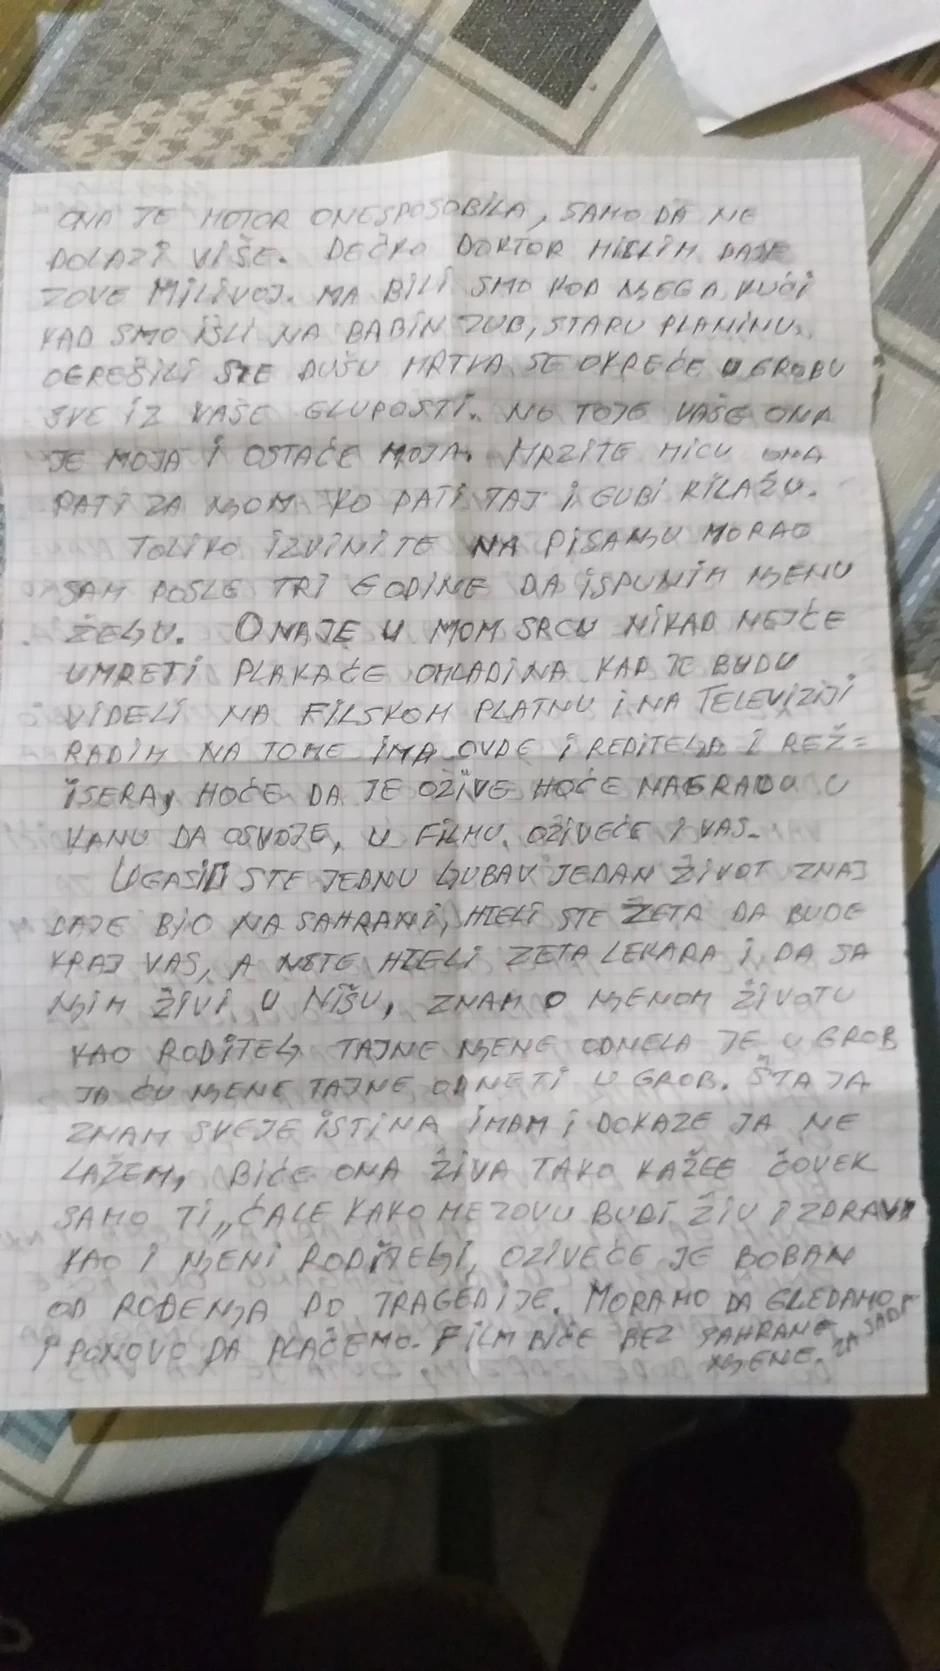 ONA JE MOTOR ONESPOSOBILA, SAMO DA NE
DOLAZI VIŠE. DEČKO DOKTOR MISLIM DAJE
ZOVE MILIVOJ. MA BILI SMO KOD NJEGA KUĆI
KAD SMO IŠLI NA BABIN ZUB, STARU PLANINU.
OGREŠILI STE DUŠU MRTVA SE OKREĆE U GROBU
SVE IZ VAŠE GLUPOSTI. NO TOJE VAŠE ONA
JE MOJA I OSTAĆE MOJA. MRZITE MICU ONA
PATI ZA NJOM KO PATI TAJ I GUBI KILAŽU.
TOLIKO IZVINITE NA PISANJU MORAO
SAM POSLE TRI GODINE DA ISPUNIM NJENU
ŽELJU. ONAJE U MOM SRCU NIKAD NEJĆE
UMRETI PLAKAĆE OMLADINA KAD JE BUDU
VIDELI NA FILSKOM PLATNU I NA TELEVIZIJI
RADIM NA TOME IMA OVDE I REDITELJA I REŽ=
ISERA, HOĆE DA JE OŽIVE HOĆE NAGRADU U
KANU DA OSVOJE, U FILMU OŽIVEĆE I VAS.
UGASILI STE JEDNU LJUBAV JEDAN ŽIVOT ZNAJ
DAJE BIO NA SAHRANI, HTELI STE ZETA DA BUDE
KRAJ VAS, A NSTE HTELI ZETA LEKARA I DA SA
NJIM ŽIVI U NIŠU, ZNAM O NJENOM ŽIVOTU
KAO RODITELJ TAJNE NJENE ODNELA JE U GROB
JA ĆU NJENE TAJNE ODNETI U GROB. ŠTA JA
ZNAM SVEJE ISTINA IMAM I DOKAZE JA NE
LAŽEM, BIĆE ONA ŽIVA TAKO KAŽEE ČOVEK
SAMO TI „ĆALE KAKO ME ZOVU BUDI ŽIV I ZDRAV
KAO I NJENI RODITELJI, OZIVEĆE JE BOBAN
OD ROĐENJA DO TRAGEDIJE. MORAMO DA GLEDAMO
I PONOVO DA PLAČEMO. FILM BIĆE BEZ SAHRANE
NJENE. ZA SADA